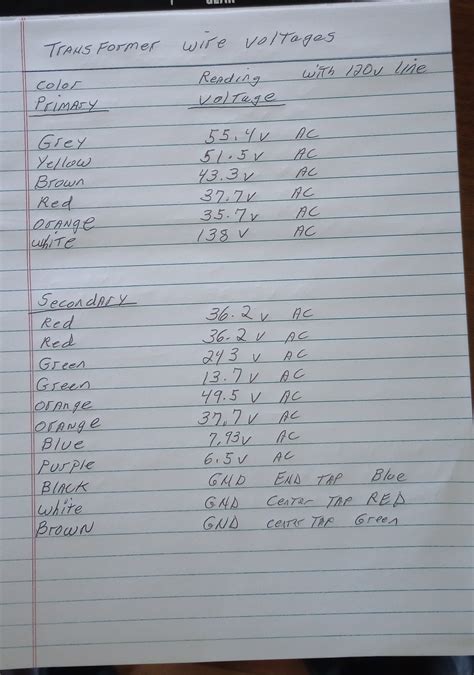 GEAR
Transformer wire voltages
Color Reading with 120v line
Primary Voltage
Grey 55.4v AC
Yellow 51.5v AC
Brown 43.3v AC
Red 37.7v AC
Orange 35.7v AC
White 138 v AC
Secondary
Red 36.2 v AC
Red 36.2 v AC
Green 243 v AC
Green 13.7 v AC
Orange 49.5 v AC
Orange 37.7 v AC
Blue 7.93v AC
Purple 6.5v AC
Black GND END TAP Blue
White GND Center TAP RED
Brown GND center TAP Green